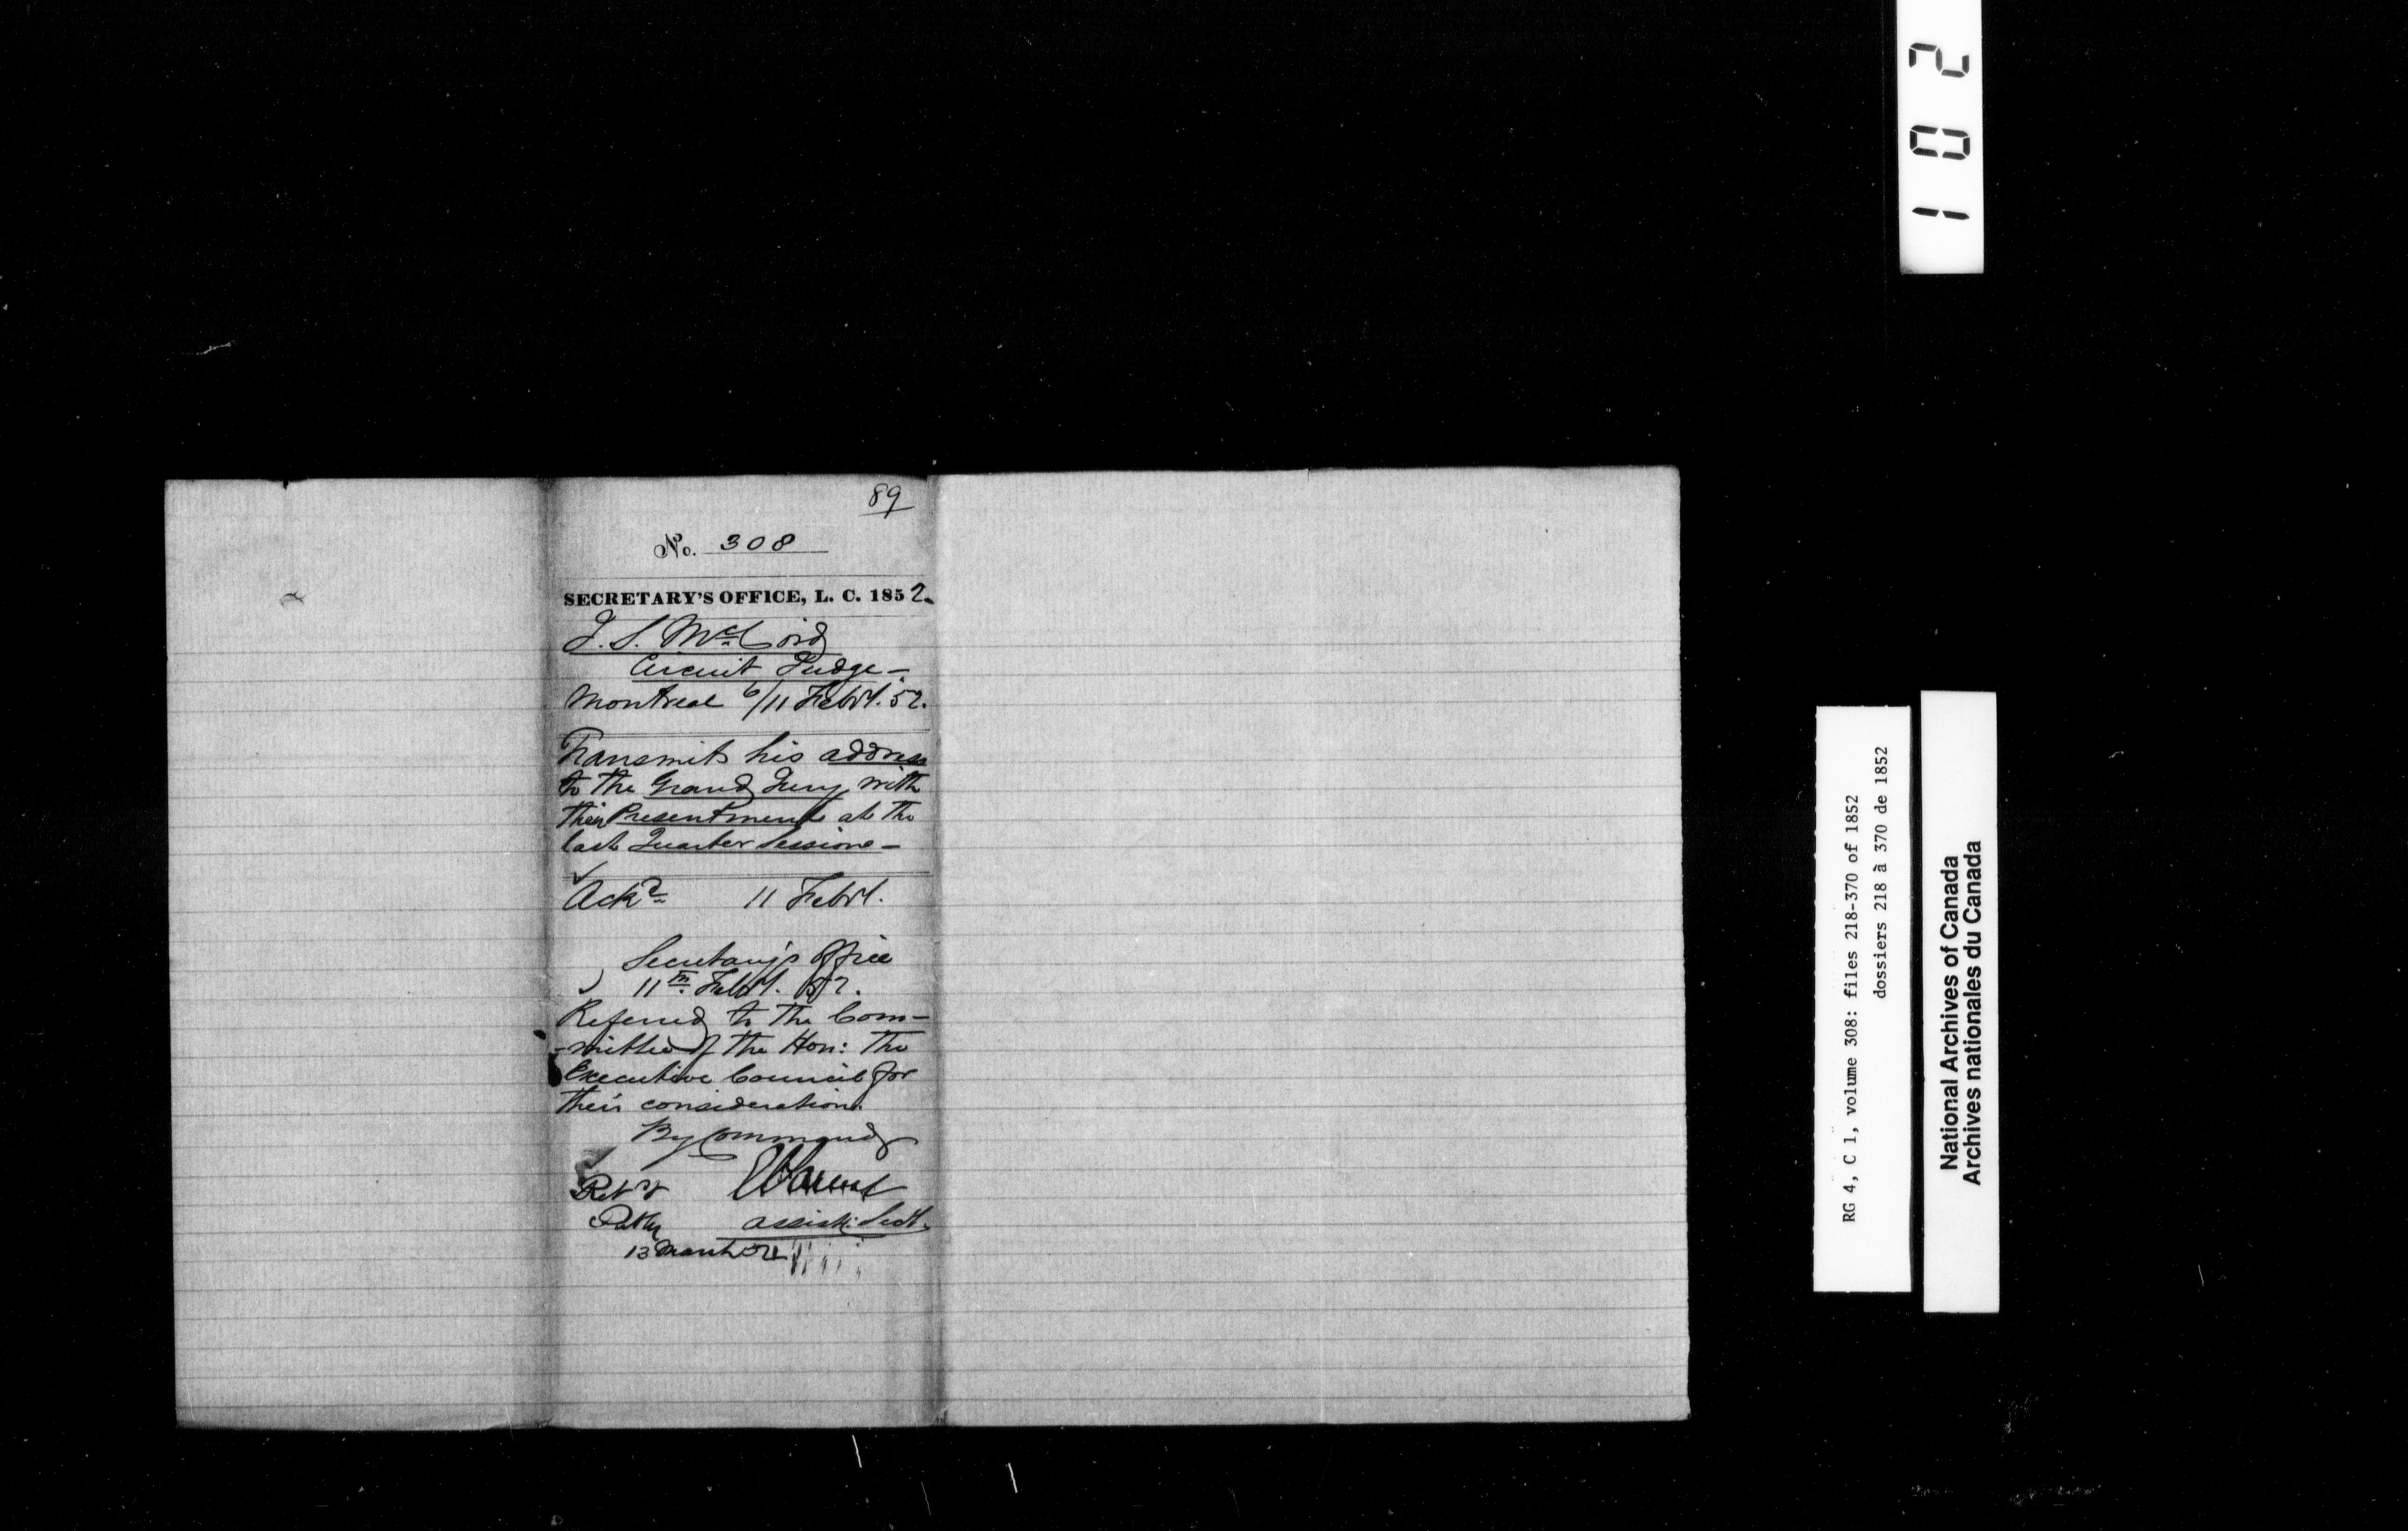 89
No. 308
SECRETARY'S OFFICE, L. C. 1852.
J. S. McCord
Circuit Judge -
Montreal 6/11 Feby. 52.
Transmits his address
to the Grand Jury with
their Presentment at the
last Quarter Sessions -
Ackd 11 Feby.
Secretary's Office
11th Feby. 52.
Referred to the Com-
-mittee of the Hon: The
Executive Council for
their consideration.
By Command
Assist: Secy.
13 March 52
102
RG 4, C 1, volume 308: files 218-370 of 1852
dossiers 218 à 370 de 1852
National Archives of Canada
Archives nationales du Canada